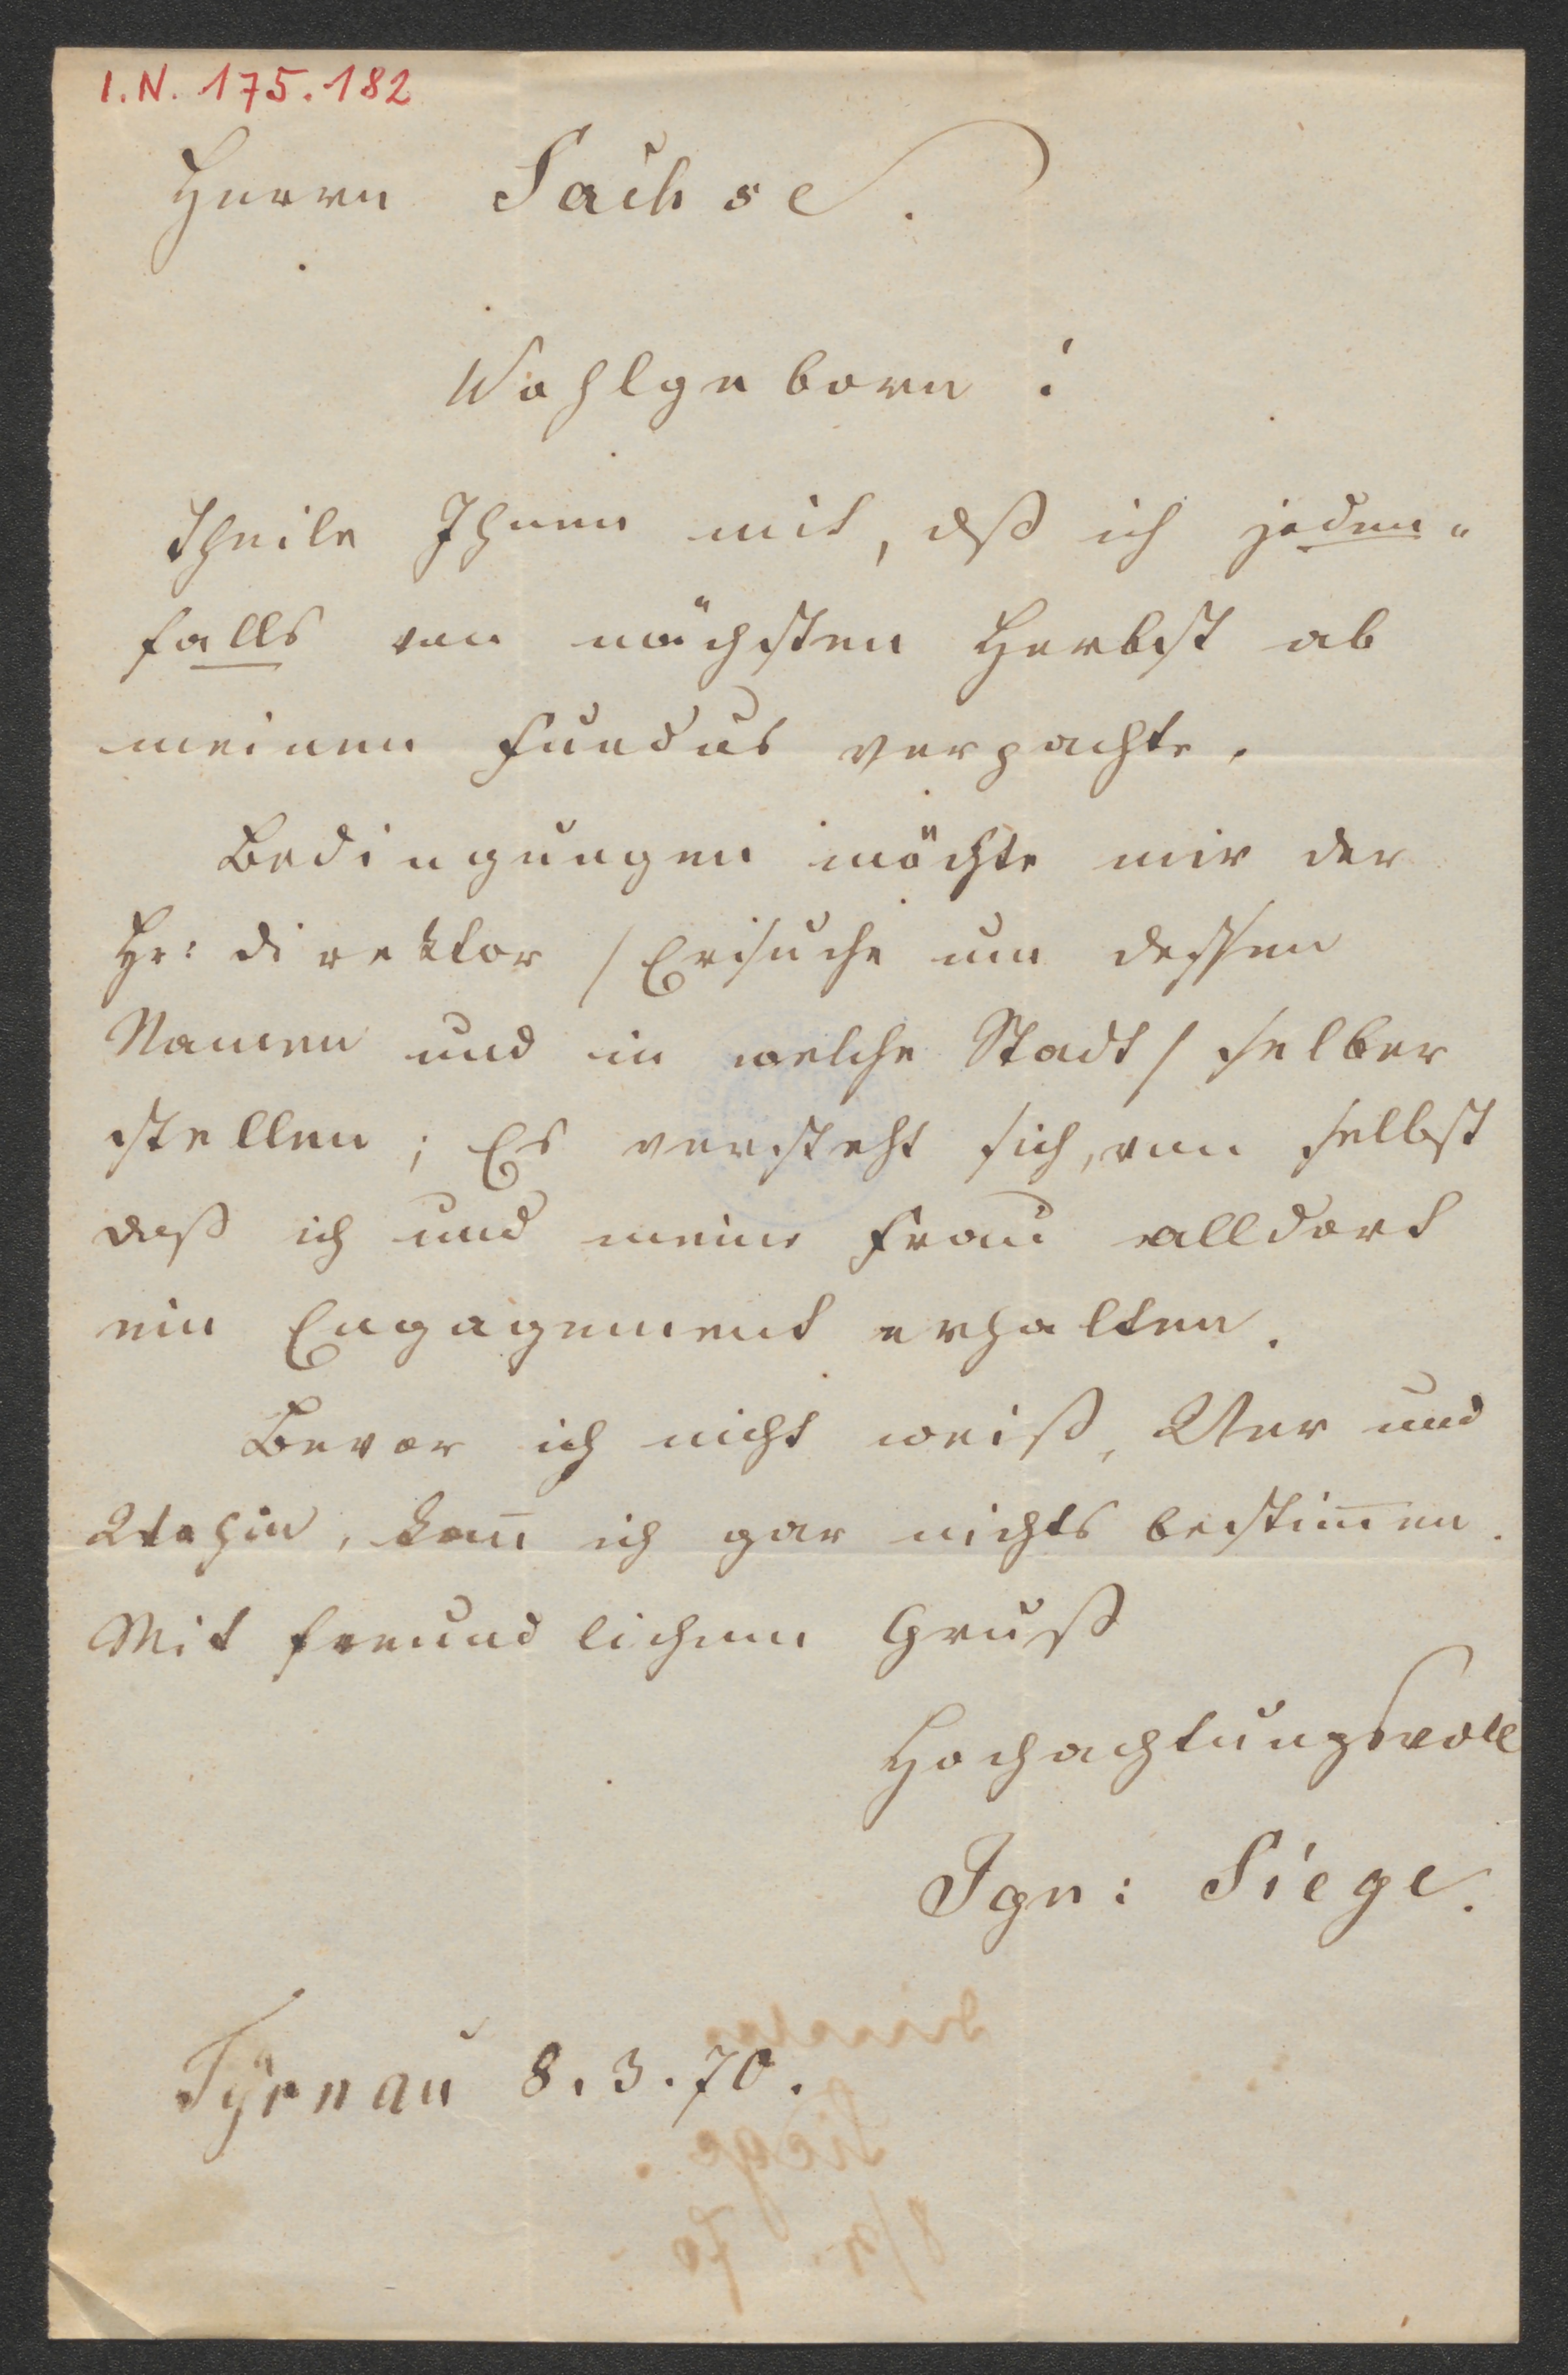 I.N. 175.182
Herrn Sachse.
Wohlgeborn!
Theile Ihnen mit, dß ich jeden-
falls von nächsten Herbst ab
meinen Fundus verpachte.
Bedingungen möchte mir der
Hr: Direktor /Ersuche um dessen
Namen und in welche Stadt/ selber
stellen; Es versteht sich, von selbst
daß ich und meine Frau alldort
ein Engagement erhalten.
Bevor ich nicht weiß, Wer und
Wohin, kan̅ ich gar nichts bestim̅en.
Mit freundlichem Gruß
Hochachtungsvoll
Ign: Siege.
Tyrnau 8.3.70.